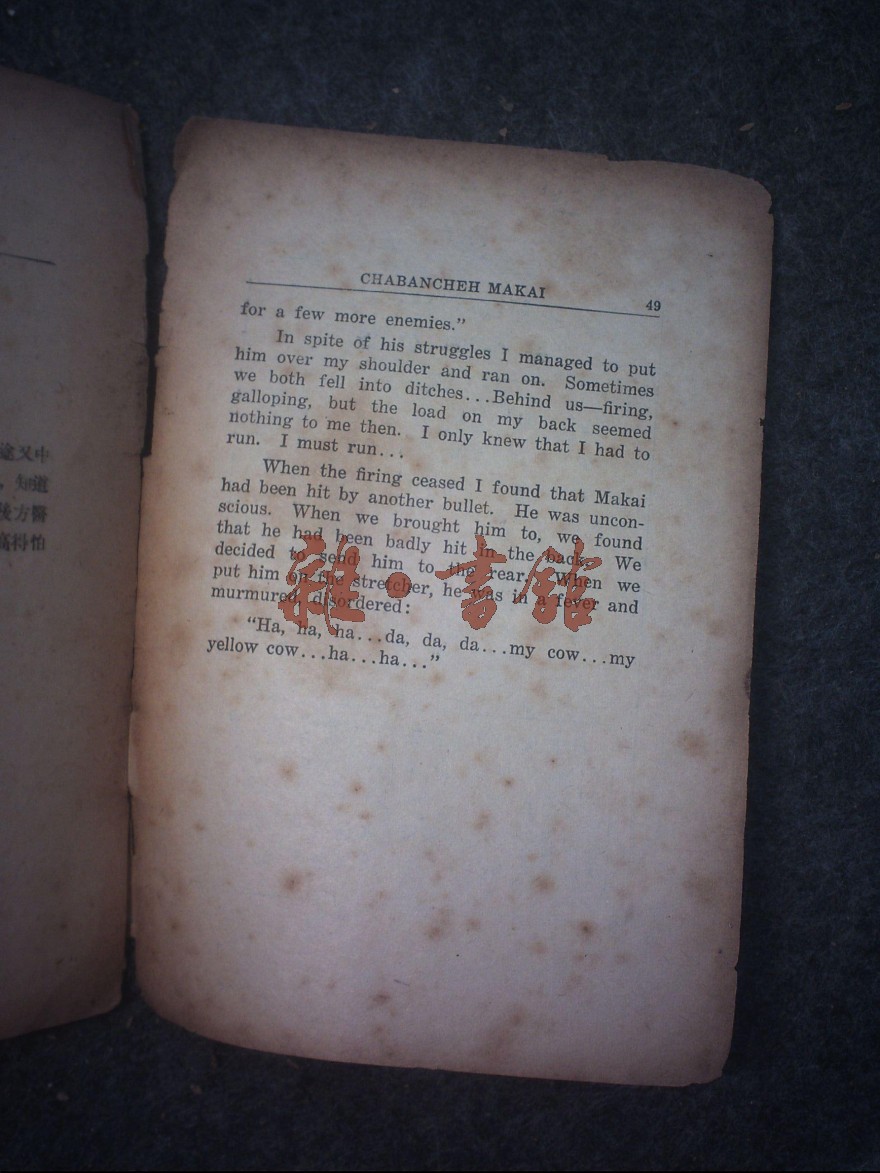 途又中
，知道
後方醫
高得怕
CHABANCHEH MAKAI 49
for a few more enemies.”
In spite of his struggles I managed to put
him over my shoulder and ran on. Sometimes
we both fell into ditches...Behind us—firing,
galloping, but the load on my back seemed
nothing to me then. I only knew that I had to
run. I must run...
When the firing ceased I found that Makai
had been hit by another bullet. He was uncon-
scious. When we brought him to, we found
that he had been badly hit in the back. We
decided to send him to the rear. When we
put him on the stretcher, he was in a fever and
murmured, disordered:
“Ha, ha, ha...da, da, da...my cow...my
yellow cow...ha...ha...”
雜·書館